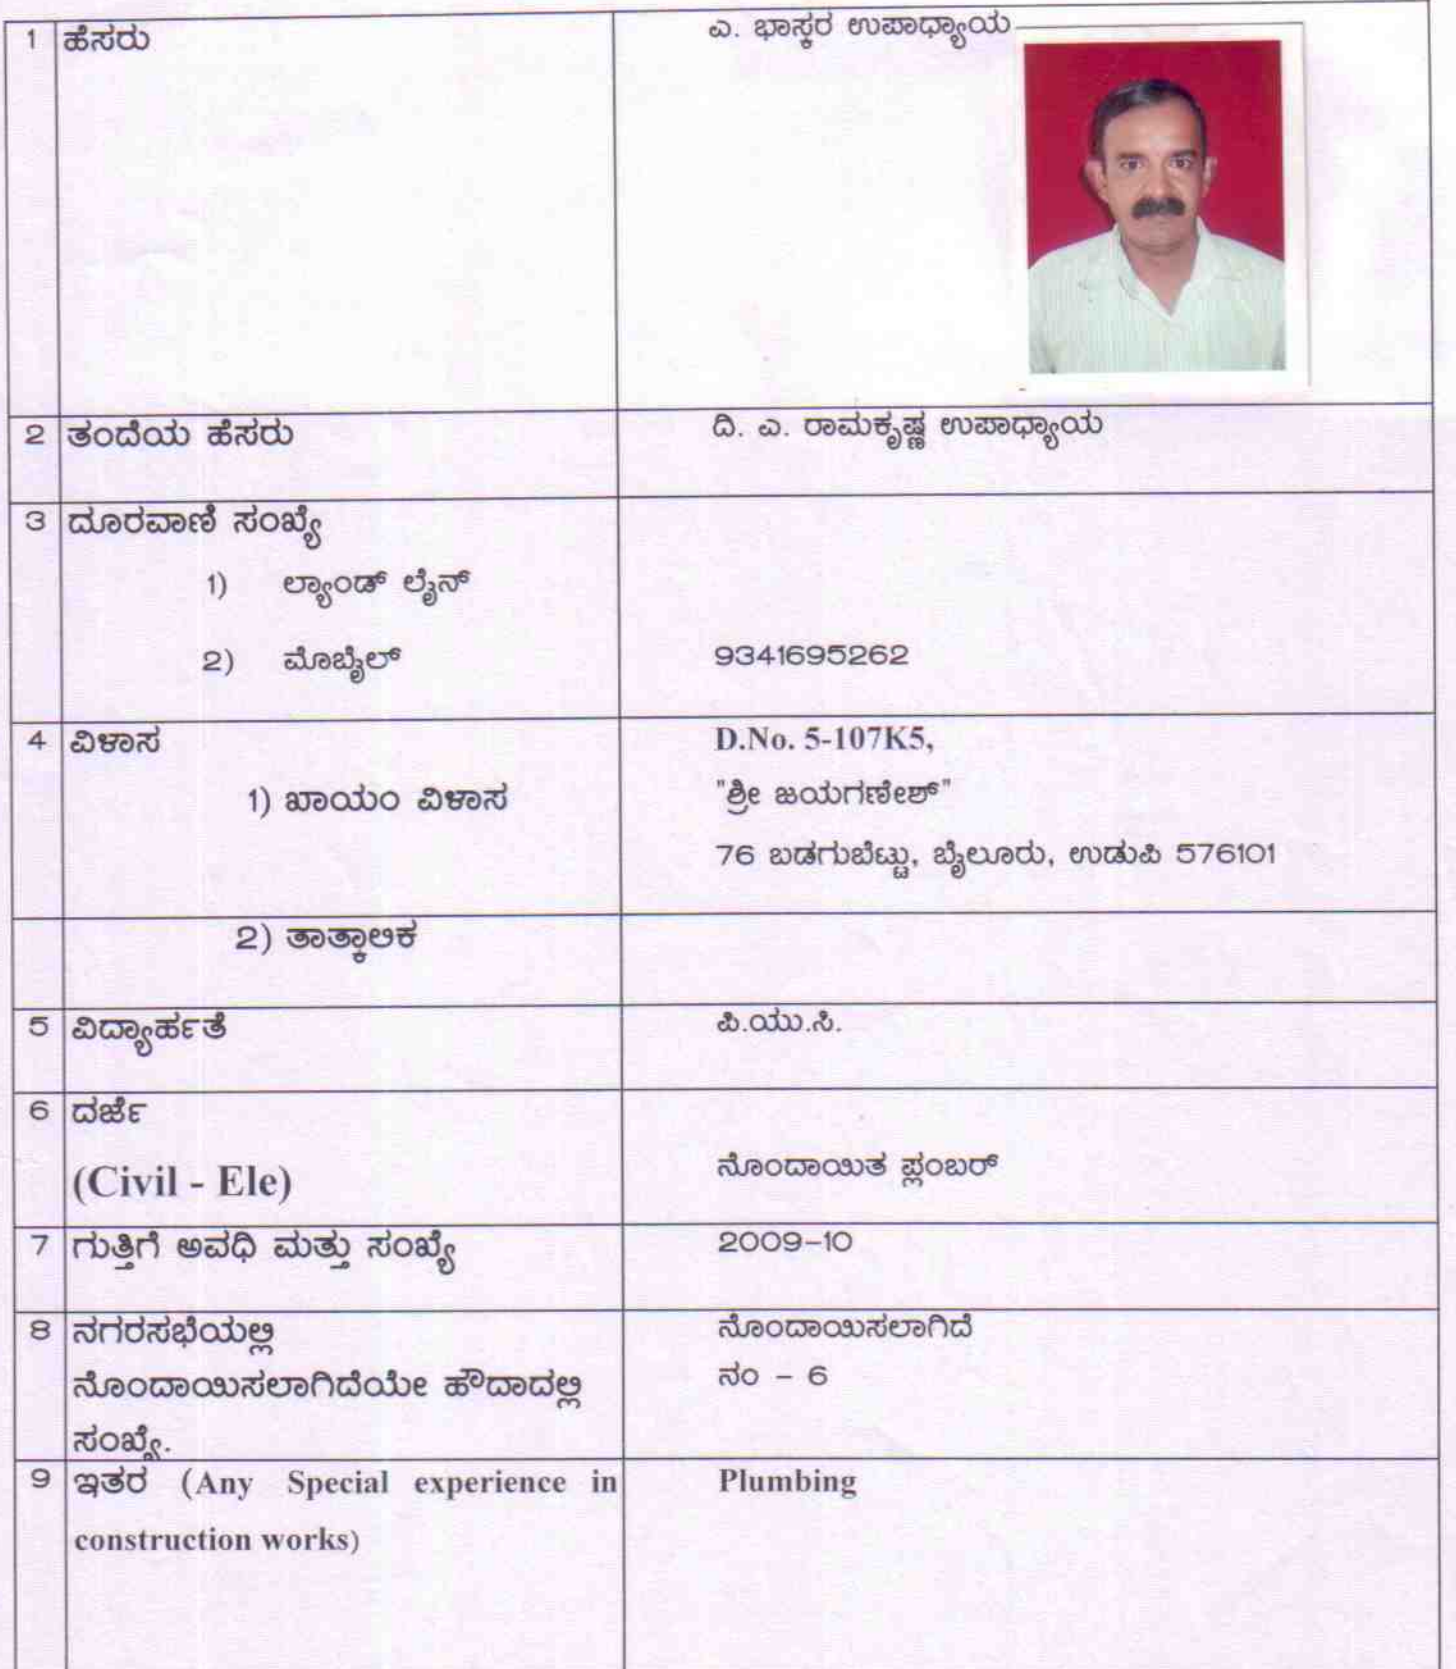 1 ಹೆಸರು ಎ. ಭಾಸ್ಕರ ಉಪಾಧ್ಯಾಯ
2 ತಂದೆಯ ಹೆಸರು ದಿ. ಎ. ರಾಮಕೃಷ್ಣ ಉಪಾಧ್ಯಾಯ
3 ದೂರವಾಣಿ ಸಂಖ್ಯೆ
1) ಲ್ಯಾಂಡ್ ಲೈನ್
2) ಮೊಬೈಲ್ 9341695262
4 ವಿಳಾಸ D.No. 5-107K5,
1) ಖಾಯಂ ವಿಳಾಸ "ಶ್ರೀ ಜಯಗಣೇಶ್"
76 ಬಡಗುಬೆಟ್ಟು, ಬೈಲೂರು, ಉಡುಪಿ 576101
2) ತಾತ್ಕಾಲಿಕ
5 ವಿದ್ಯಾರ್ಹತೆ ಪಿ.ಯು.ಸಿ.
6 ದರ್ಜೆ
(Civil - Ele) ನೊಂದಾಯಿತ ಪ್ಲಂಬರ್
7 ಗುತ್ತಿಗೆ ಅವಧಿ ಮತ್ತು ಸಂಖ್ಯೆ 2009-10
8 ನಗರಸಭೆಯಲ್ಲಿ ನೊಂದಾಯಿಸಲಾಗಿದೆ
ನೊಂದಾಯಿಸಲಾಗಿದೆಯೇ ಹೌದಾದಲ್ಲಿ ನಂ - 6
ಸಂಖ್ಯೆ.
9 ಇತರ (Any Special experience in Plumbing
construction works)